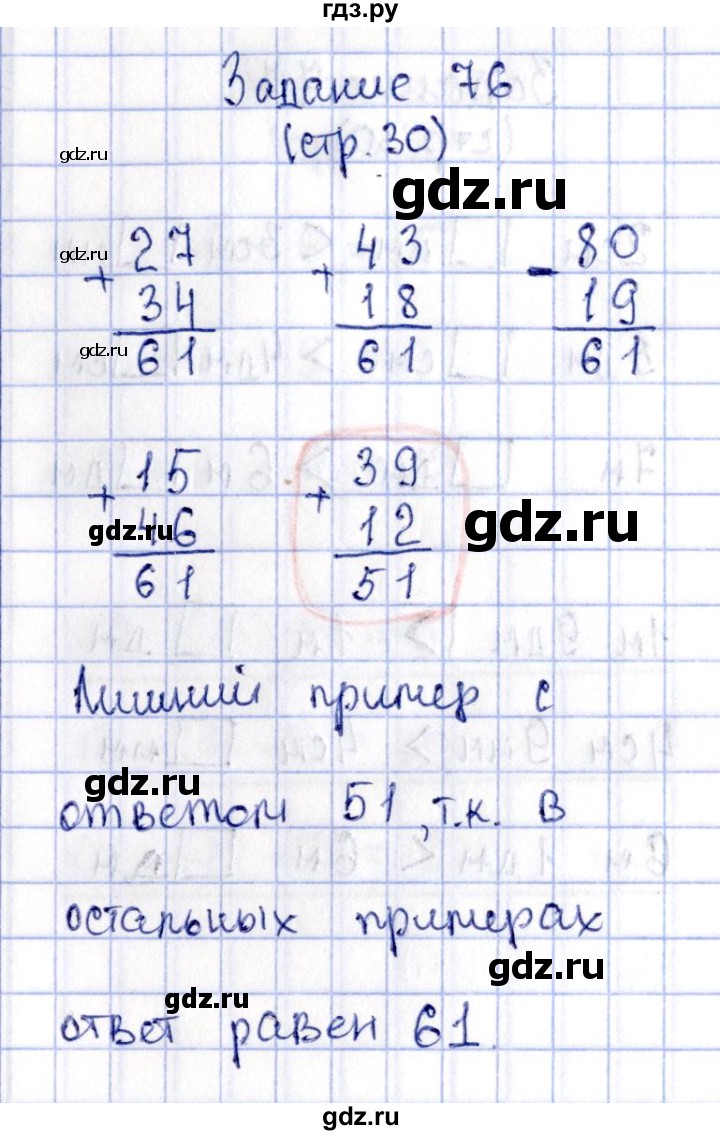 гдз.ру
Задание 76
(стр. 30)
gdz.ru
gdz.ru
gdz.ru
27 43 80
+ + -
34 18 19
gdz.ru
61 61 61
15 39
+ +
46 12
gdz.ru
gdz.ru
61 51
Лишний пример с
gdz.ru
ответом 51, т.к. в
остальных примерах
gdz.ru
gdz.ru
ответ равен 61.
gdz.ru